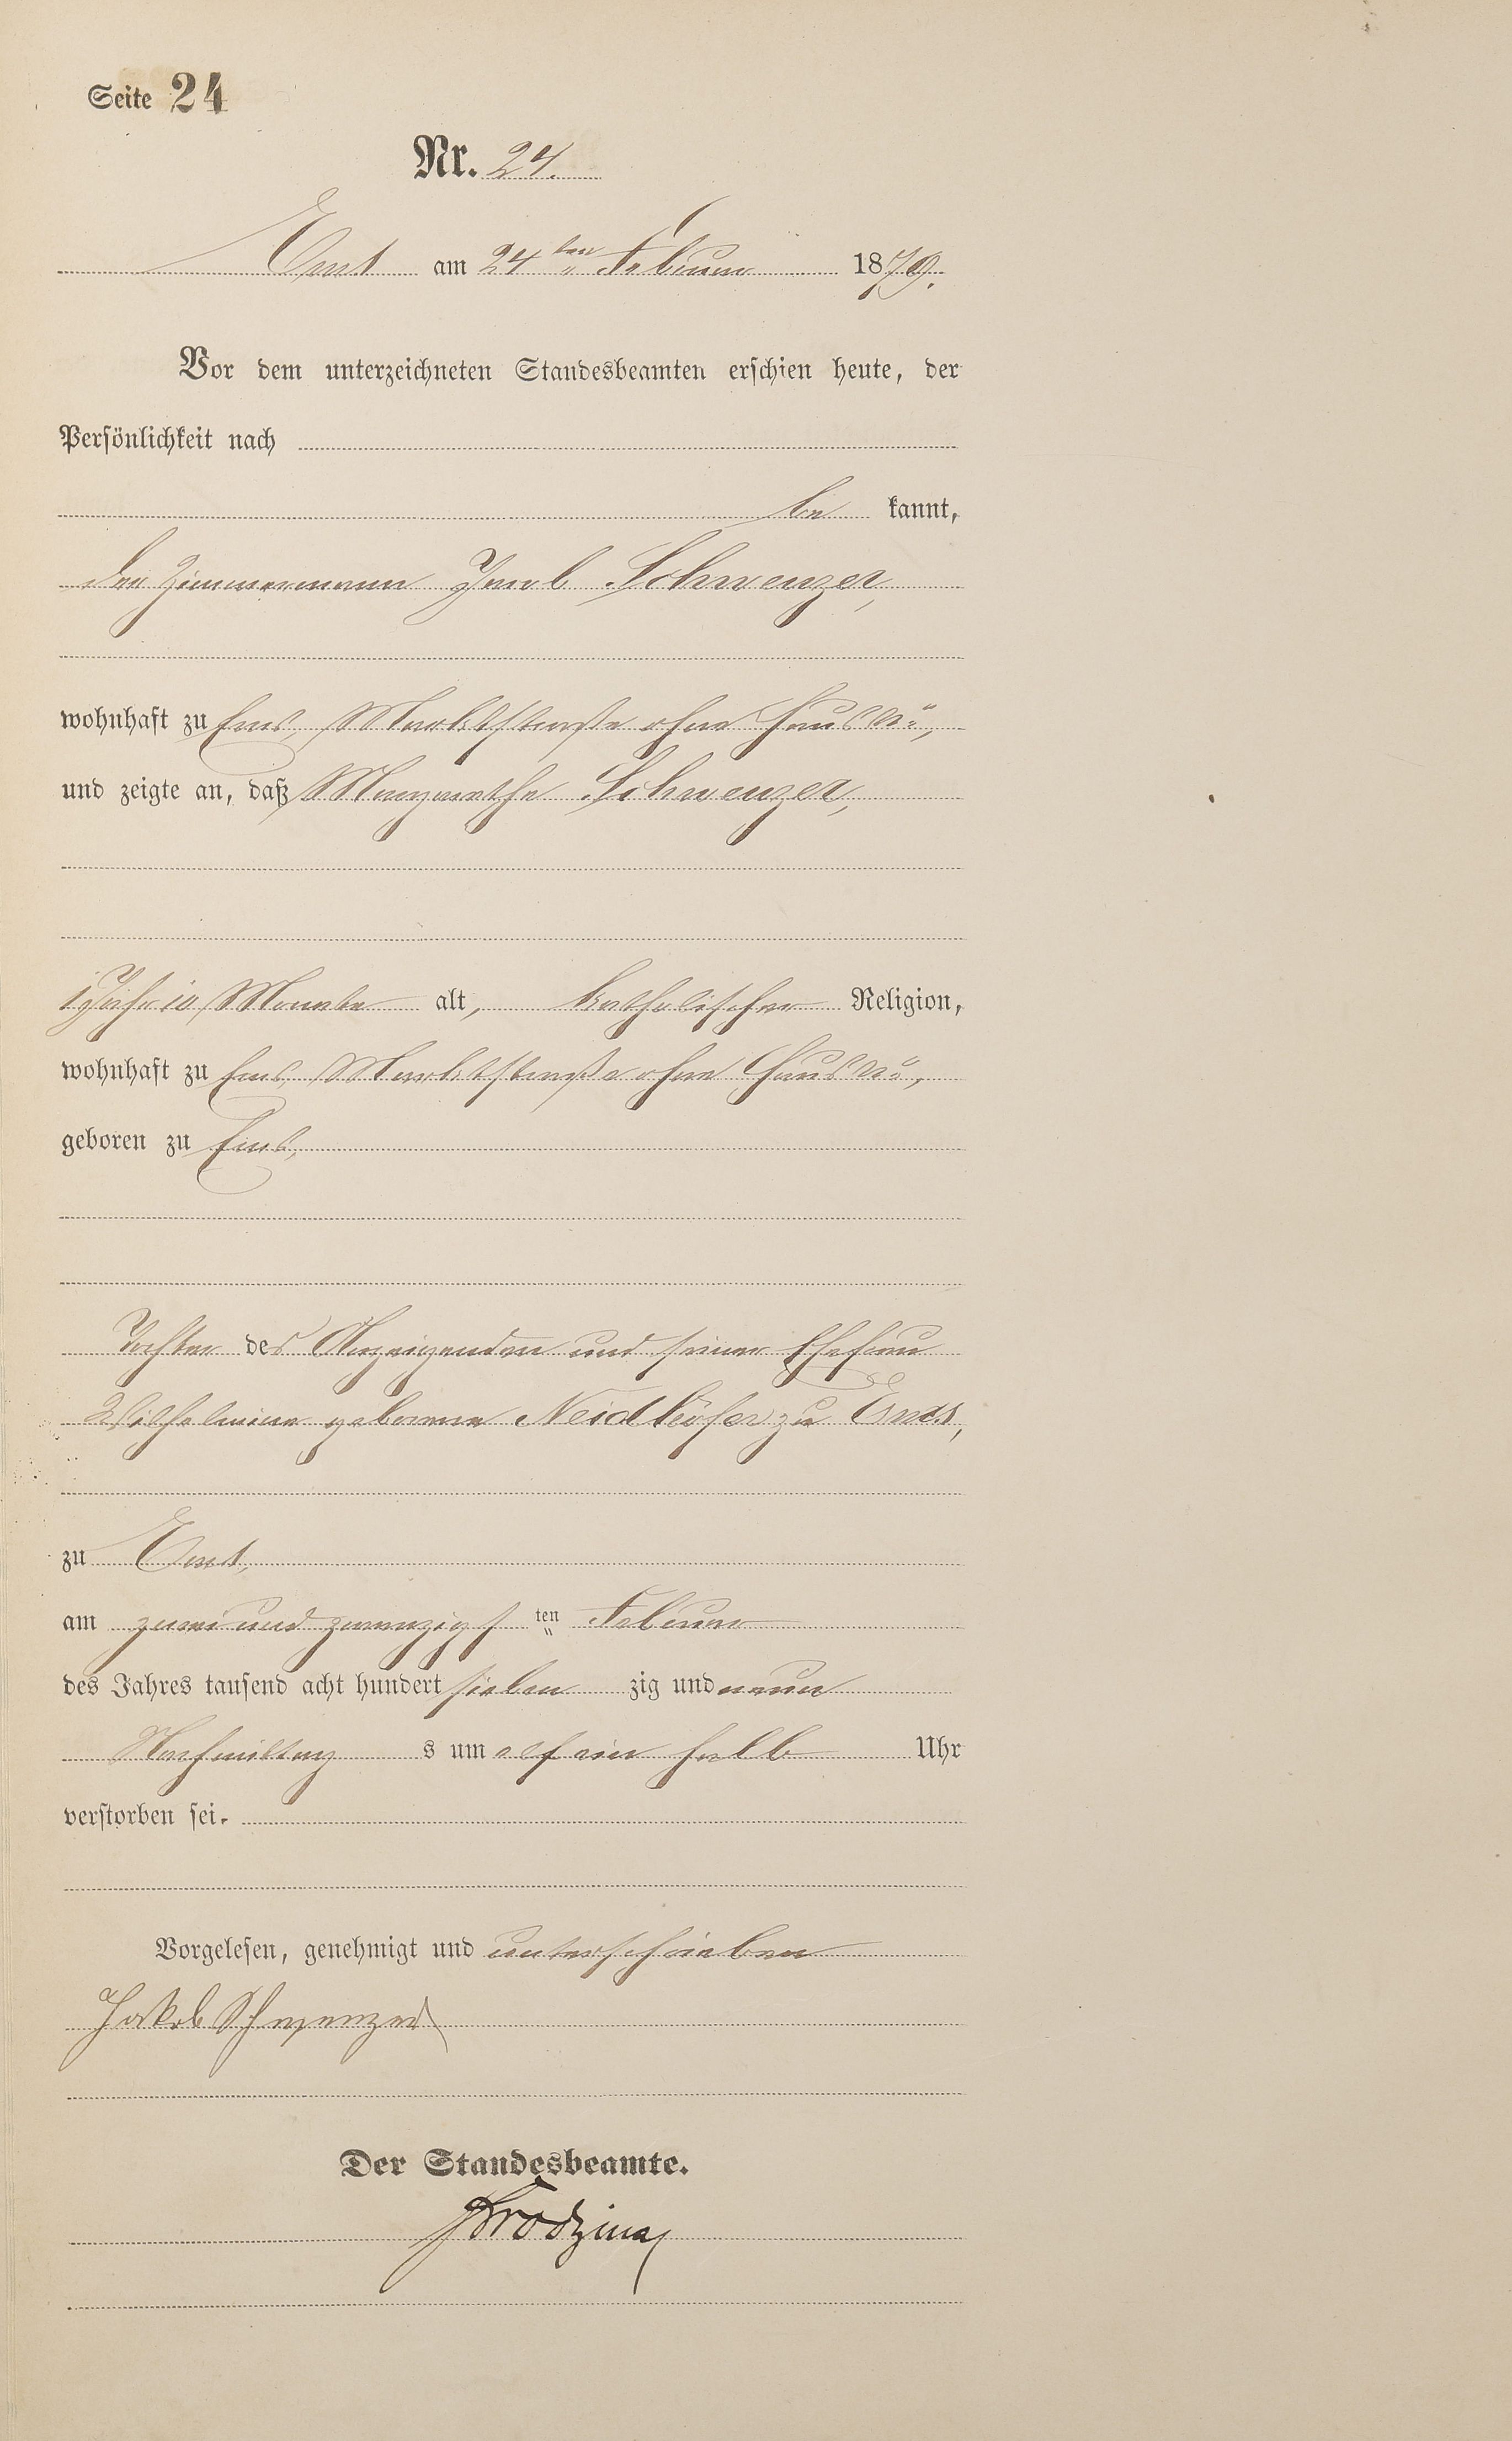 Seite 24
Nr. 24.
Ems am 24ten Februar 1879.
Vor dem unterzeichneten Standesbeamten erschien heute, der
Persönlichkeit nach
be kannt,
der Zimmermann Jacob Schwenzer,
wohnhaft zu Ems, Marktstraße ohne Haus No,
und zeigte an, daß Margarethe Schwenzer,
1 Jahr 10 Monate alt, katholischer Religion,
wohnhaft zu Ems, Marktstraße ohne Haus No,
geboren zu Ems,
Tochter des Anzeigenden und seiner Ehefrau
Wilhelmine geborene Neidhöfer zu Ems,
zu Ems,
am zwei und zwanzigsten Februar
des Jahres tausend acht hundert sieben zig und neun
Nachmittag s um elf ein halb Uhr
verstorben sei.
Vorgelesen, genehmigt und unterschrieben
Jakob Schwenzer
Der Standesbeamte.